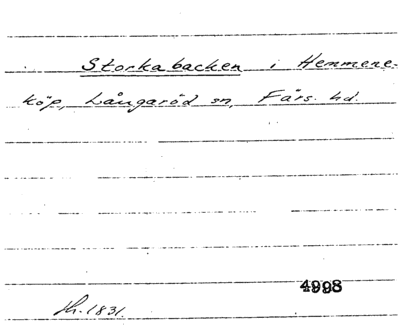 Storkabacken i Hemmene-
köp, Långaröd sn, Färs. hd.
4998
H. 1831.